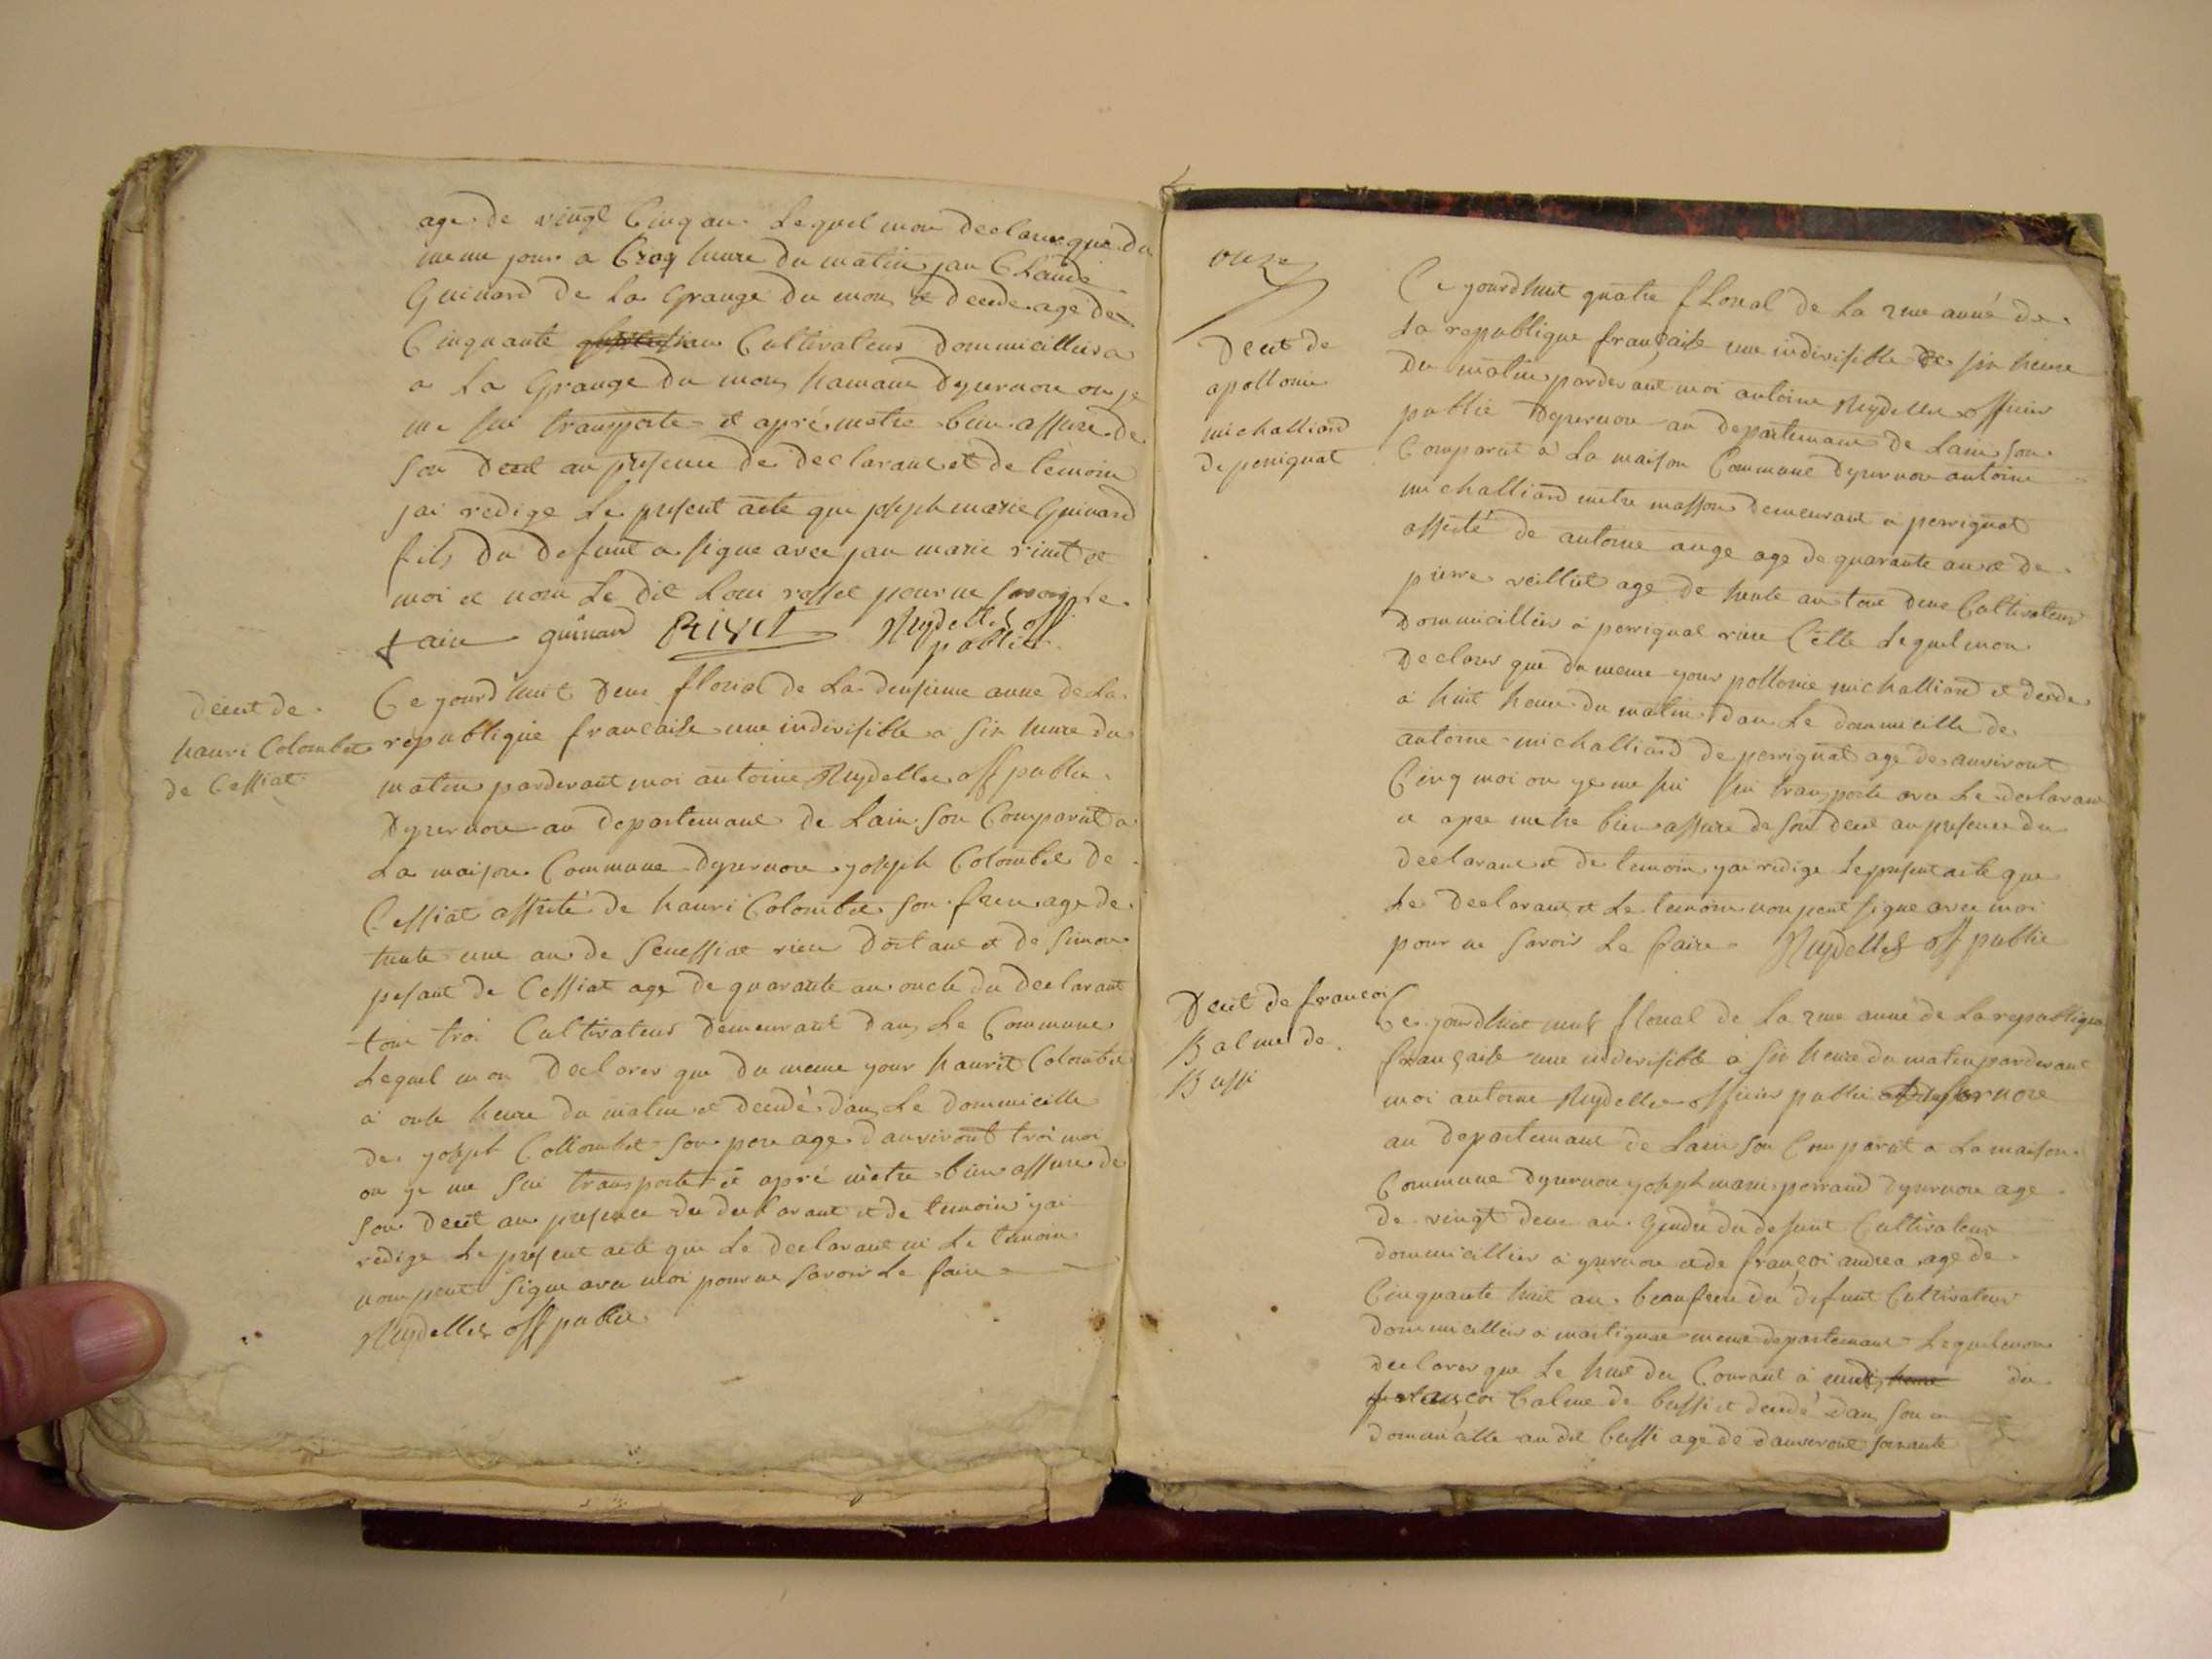 age de vingt Cinq an Lequel mon declare que du
meme jour a Cinq heure du matin jan Claude
Guinard de La Grange du mon et decede age de
Cinquante an Cultivateur Dommicillier a
a La Grange du mon hamaue Dyzernore ou je
me sui transporte et apré metre bien assure de
son decet an presence de declarant et de temoin
jai redige Le present acte que joseph marie Guinard
fils du defunt a signe avec jan marie rivet et
moi et non Le dit Loui rosset pour ne savoir Le
faire guinard Rivet Nuydellet off
public
Decet de
hanri Colombet
de Cessiat
Ce yourdhuit Deux florial de La deusieme anne de La
republique francaise une indivisible a six heure du
matin pardevant moi antoine Nuydellet off public
Dyzernore au departemant de Lain son Comparut a
La maison Commune dyzernore yoseph Colombet de
Cessiat assisté de hanri Colombet son frere age de
trente une an de Senessiat riere Dortant et de simon
pesant de Cessiat age de quarante an oncle du declarant
tout troi Cultivateur demeurant dans Le Commune
Lequel mon Declarer que du meme your hanrit Colombet
a onte heure du matin et decedé dans Le dommicille
de yoseph Collombet son pere age danviront troi moi
ou ye me sui transporte et apré metre bien assure de
son decet an presence du declarant et de temoin yai
redige Le present acte que Le declarant ni Le temoin
nom peut signe avec moi pour ne savoir Le faire
Nuydellet off public
onze
Decet de
apollonie
michalliard
de perrignat
Ce yourdhuit quatre floreal de La 2me anné de
La republique française une indivisible a six heure
Du matin pardevant moi antoine Nuydellet officier
public Dyzernore au departemant de Lain son
Comparut a La maison Commune dyzernore antoine
michalliard metre masson demeurant a perrignat
assisté de antoine auge age de quarante an et de
pierre veillet age de trente an tout deux Cultivateur
Dommicillier a perrignat riere Celle Lequel mon
Declarer que du meme your pollonie michalliard et decede
a huit heure du matin dans Le dommicille de
antoine michalliard de perrignat age de anviront
Cinq moi ou ye me sui sui transporte avec Le declarant
et apre metre bien assure de son decet an presence du
declarant et de temoin yai redige Le present acte que
Le Declarant et Le temoin non peut signe avec moi
pour ne savoir Le faire Nuydellet off public
Decet de françoi
Balme de
Bussi
Ce yourdhuit neuf floreal de La 2me anne de La republique
française une indivisible a six heure du matin pardevant
moi antoine Nuydellet officier public
au departemant de Lain son Comparut a La maison
Commune dyzernore yoseph marie perrand dyzernore age
de vingt deux an Gendre du defunt Cultivateur
dommicillier a yzernore et de françoi andrea age de
Cinquante huit an beaufrere du defunt Cultivateur
Dommicillier a martignat meme departemant Lequel mon
declarer que Le huit du Courant a midi heure du
françoi balme de bussi et decedé dans son
dommicille au dit bussi age de danviront soixante